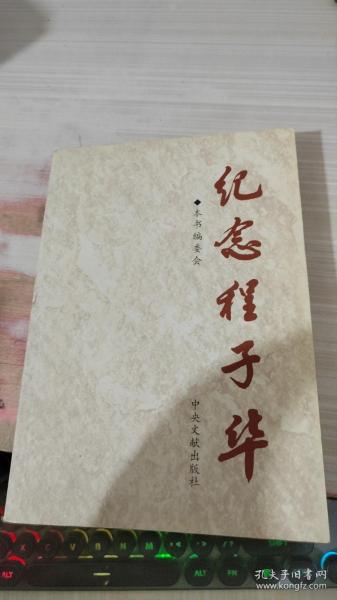 纪念程子华
◆本书编委会
中央文献出版社
ALT
FN
ALT
孔夫子旧书网
kongfz.com